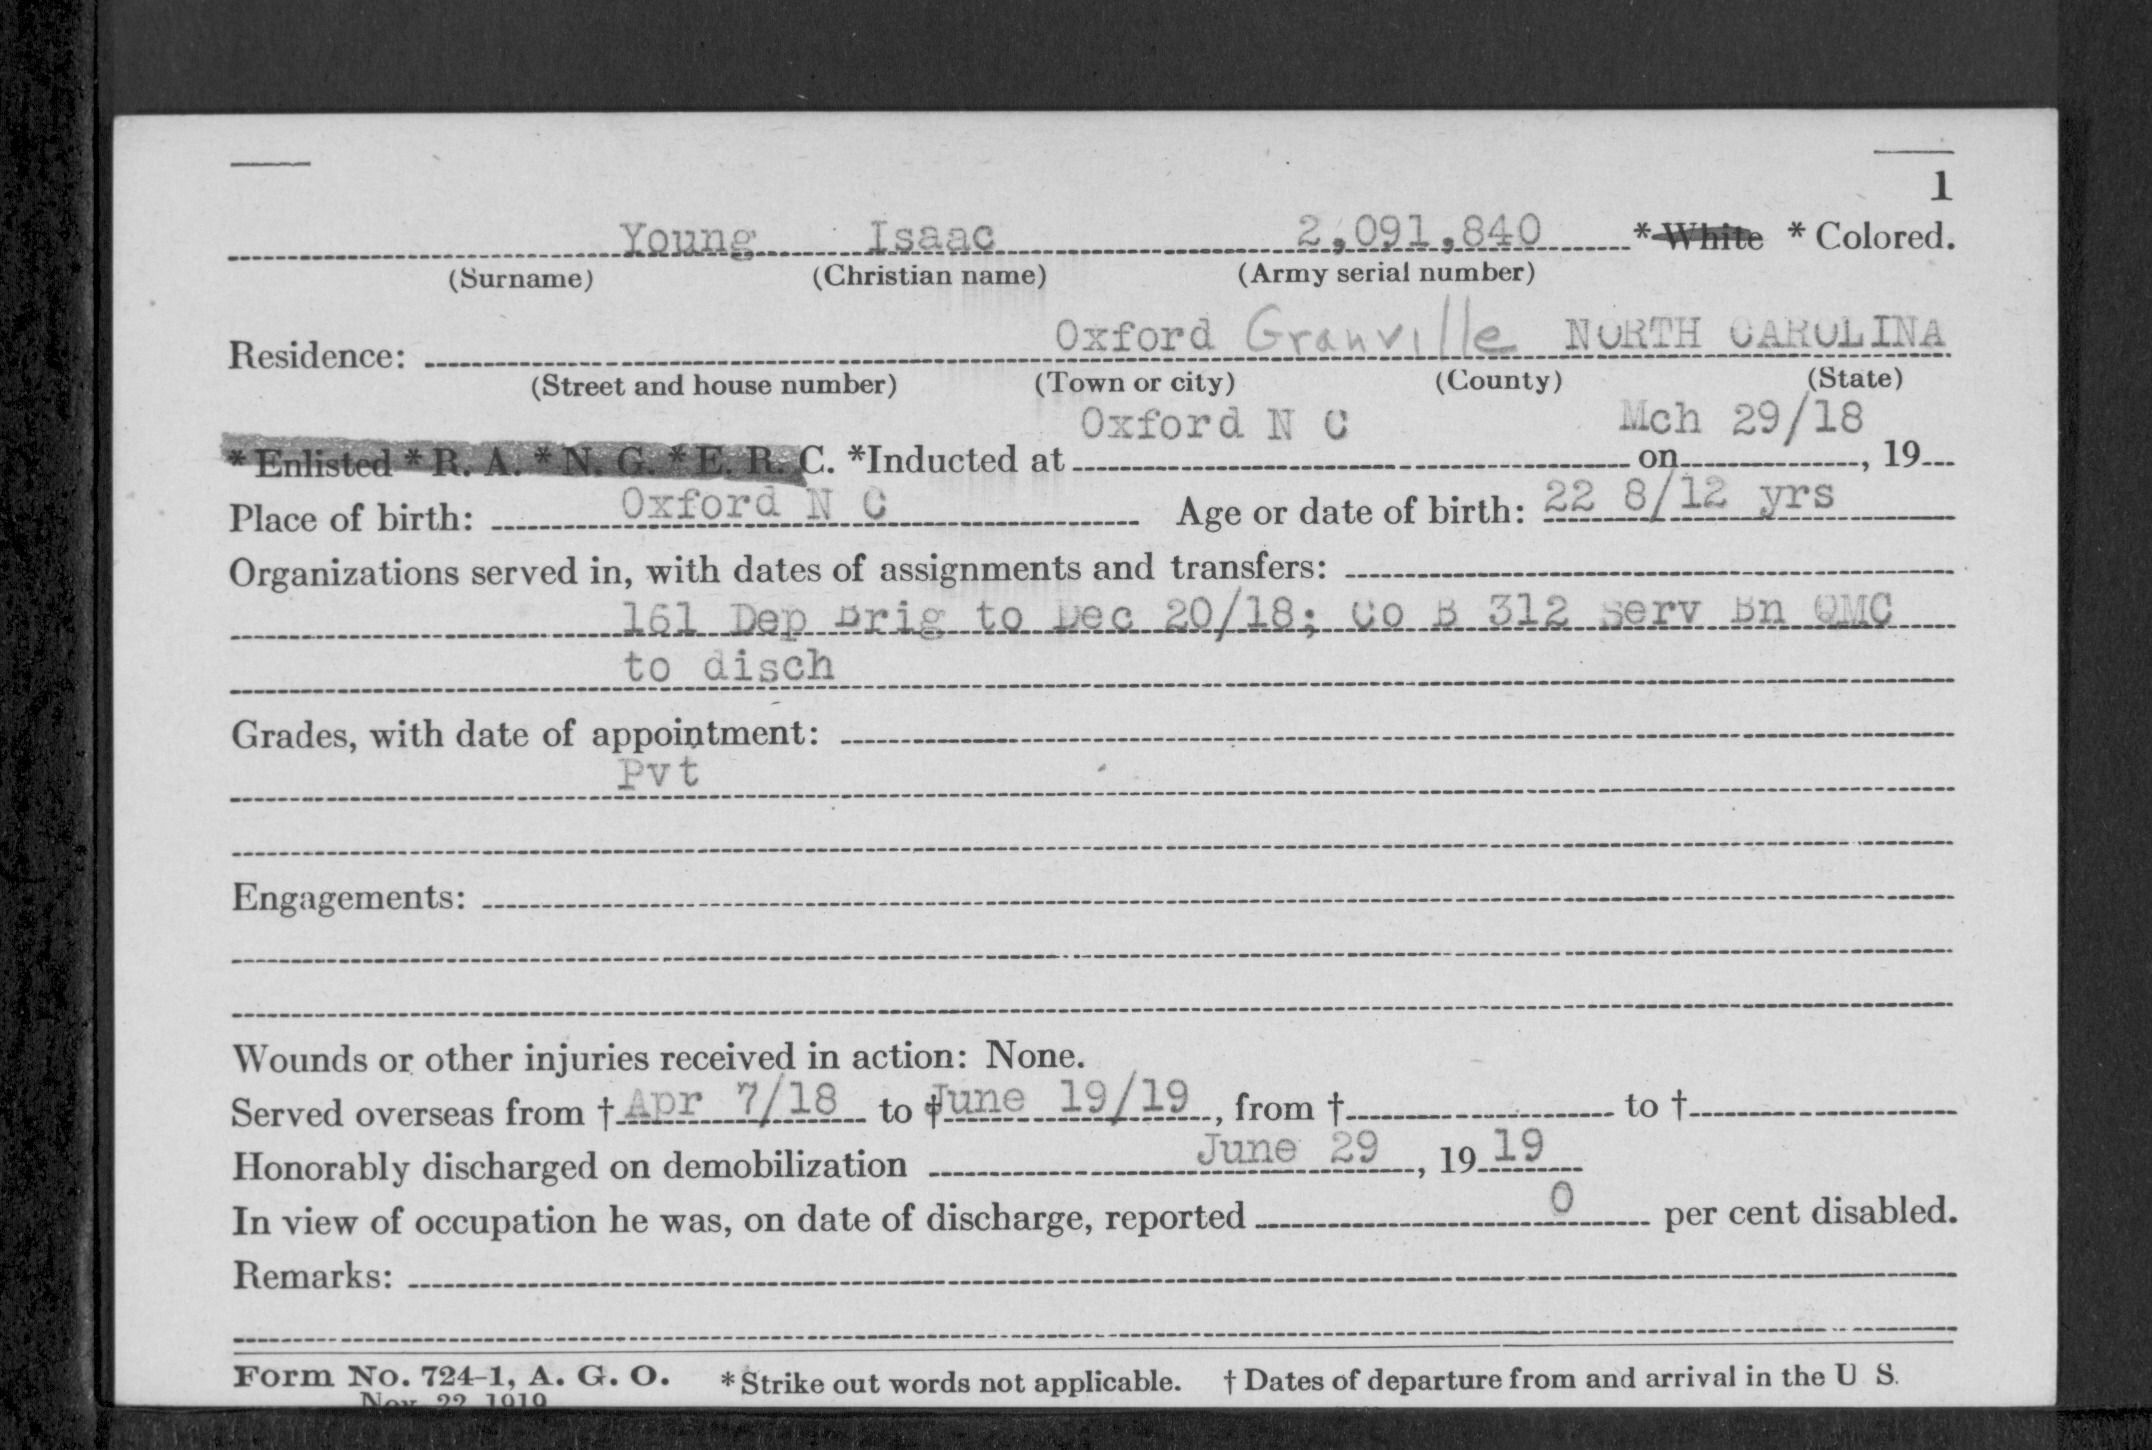 1
Young Isaac 2,091,840 * White * Colored.
(Surname) (Christian name) (Army serial number)
Residence: Oxford Granville NORTH CAROLINA
(Street and house number) (Town or city) (County) (State)
Oxford N C Mch 29/18
* Enlisted * R. A. * N. G. * E. R. C. *Inducted at on , 19
Place of birth: Oxford N C Age or date of birth: 22 8/12 yrs
Organizations served in, with dates of assignments and transfers:
161 Dep Brig to Dec 20/18; Co B 312 Serv Bn QMC
to disch
Grades, with date of appointment:
Pvt
Engagements:
Wounds or other injuries received in action: None.
Served overseas from † Apr 7/18 to † June 19/19, from † to †
Honorably discharged on demobilization June 29, 19 19
In view of occupation he was, on date of discharge, reported 0 per cent disabled.
Remarks:
Form No. 724-1, A. G. O. * Strike out words not applicable. † Dates of departure from and arrival in the U S.
Nov. 22 1919